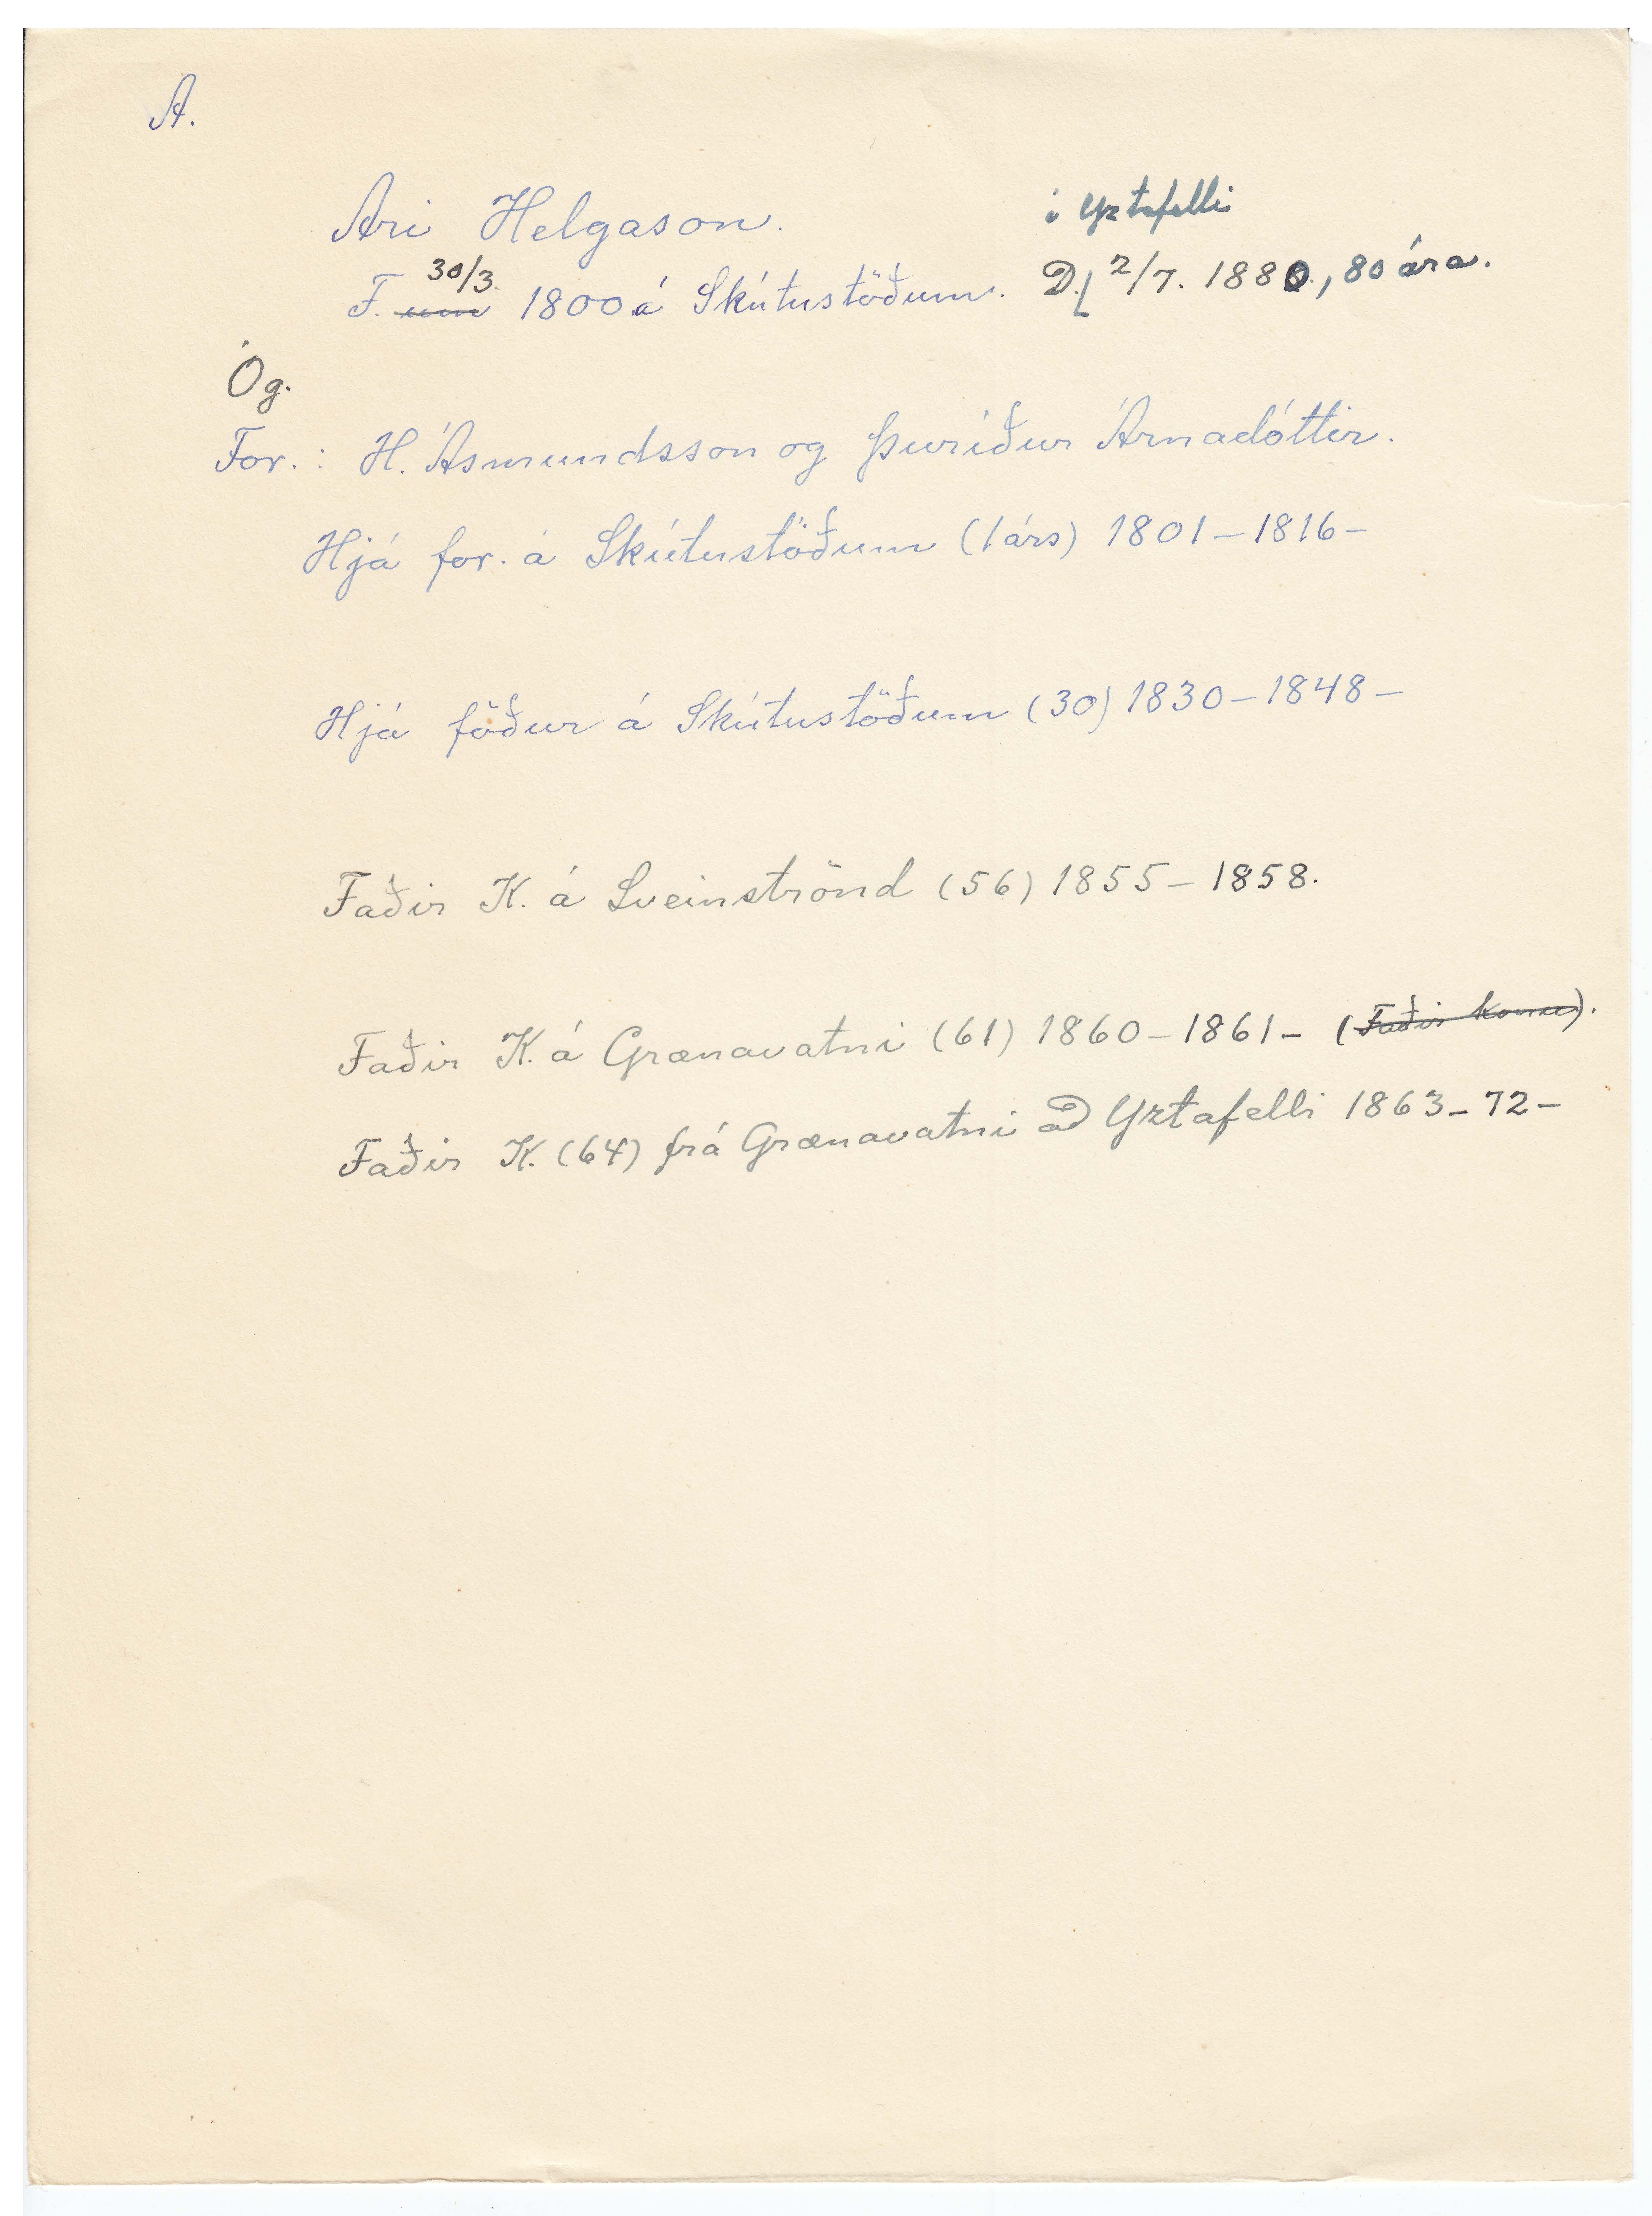 A.
Ari Helgason.
í Yztafelli
F. um 30/3. 1800 á Skútustöðum. D. 2/7. 1880, 80 ára.
Óg.
For.: H. Ásmundsson og Þuríður Árnadóttir.
Hjá for. á Skútustöðum (1 árs) 1801-1816-
Hjá föður á Skútustöðum (30) 1830-1848-
Faðir K. á Sveinströnd (56) 1855-1858.
Faðir K. á Grænavatni (61) 1860-1861- (Faðir konu).
Faðir K. (64) frá Grænavatni að Yztafelli 1863-72-